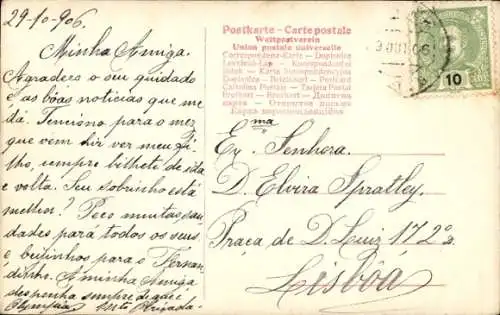 29-10-906
Minha Amiga.
Agradeço o seu cuidado
e as bôas noticias que me
dá. Tenciono, para o mez
que vem hir ver meu fi-
lho, sempre bilhete de ida
e volta. Seu sobrinho está
melhor? Peço muitas sau-
dades pará todos os seus
e beijinhos para o Fernan-
dinho. A minha Amiga
desponha sempre de que é
Olympia Mto Obrigada.
Postkarte - Carte postale
Weltpostverein
Union postale universelle
Correspondenz-Karte — Dopisnice
Levelezö-Lap — Korespondencni
listek — Karta korespondencyjna
Dopisnica — Briefkaart — Brefkort
Cartolina Postale — Tarjeta Postal
Brevkort — Brevkort — Дописна
карта — Открытое письмо
10
Exma
Senhora.
D. Elvira Spratley.
Praça de D. Luiz 172º
Lisbôa